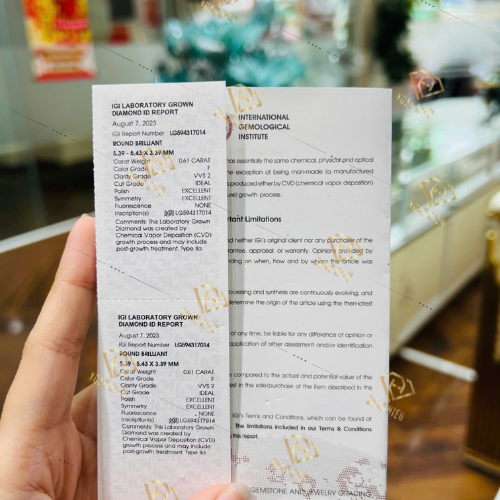 IGI LABORATORY GROWN
DIAMOND ID REPORT
August 7, 2023
IGI Report Number LG594317014
ROUND BRILLIANT
5.39 - 5.43 X 3.39 MM
Carat Weight 0.61 CARAT
Color Grade F
Clarity Grade VVS 2
Cut Grade IDEAL
Polish EXCELLENT
Symmetry EXCELLENT
Fluorescence NONE
Inscription(s) LG594317014
Comments: This Laboratory Grown
Diamond was created by
Chemical Vapor Deposition (CVD)
growth process and may include
post-growth treatment. Type IIa
IGI LABORATORY GROWN
DIAMOND ID REPORT
August 7, 2023
IGI Report Number LG594317014
ROUND BRILLIANT
5.39 - 5.43 X 3.39 MM
Carat Weight 0.61 CARAT
Color Grade F
Clarity Grade VVS 2
Cut Grade IDEAL
Polish EXCELLENT
Symmetry EXCELLENT
Fluorescence NONE
Inscription(s) LG594317014
Comments: This Laboratory Grown
Diamond was created by
Chemical Vapor Deposition (CVD)
growth process and may include
post-growth treatment. Type IIa
INTERNATIONAL
GEMOLOGICAL
INSTITUTE
has essentially the same chemical, physical and optical
exception of being man-made (a manufactured
produced either by CVD (chemical vapor deposition)
growth process.
Limitations
neither IGI's original client nor any purchaser of the
guarantee, appraisal, or warranty. Opinions provided by
on when, how and by whom the article was
processing and synthesis are continuously evolving, and
determine the origin of the article using the then-latest
at any time, be liable for any difference of opinion or
application of other assessment and/or identification
compared to the actual and potential value of the
in the sale/purchase of the item described in this
IGI's Terms and Conditions, which can be found at
The limitations included in our Terms & Conditions
this report.
GEMSTONE AND JEWELRY GRADING